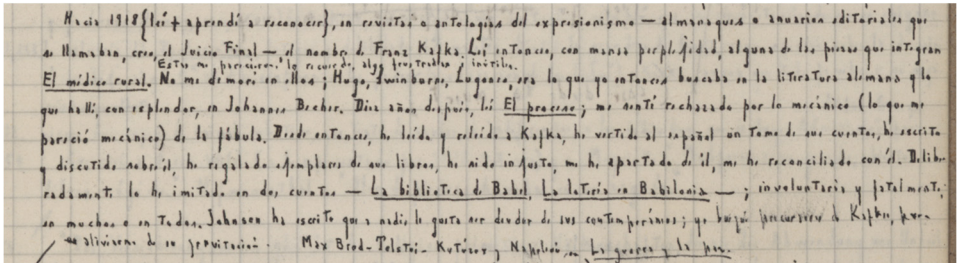 Hacia 1918 {leí + aprendí a reconocer}, en revistas o antologías del expresionismo — almanaques o anuarios editoriales que
se llamaban, creo, el Juicio Final — el nombre de Franz Kafka. Leí entonces, con mansa perplejidad, alguna de las piezas que integran
Estas me parecieron, lo recuerdo, algo frustradas e inútiles.
El médico rural. No me demoré en ellos; Hugo, Swinburne, Lugones, era lo que yo entonces buscaba en la literatura alemana y lo
que hallé, con esplendor, en Johannes Becher. Diez años después, leí El proceso; me sentí rechazado por lo mecánico (lo que me
pareció mecánico) de la fábula. Desde entonces, he leído y releído a Kafka, he vertido al español un tomo de sus cuentos, he escrito
y discutido sobre él, he regalado ejemplares de sus libros, he sido injusto, me he apartado de él, me he reconciliado con él. Delibe-
radamente lo he imitado en dos cuentos — La biblioteca de Babel, La lotería en Babilonia — ; involuntaria y fatalmente,
en muchos o en todos. Johnson ha escrito que a nadie le gusta ser deudor de sus contemporáneos; yo busqué precursores de Kafka, para
aliviarme de su gravitación. Max Brod - Tolstoi - Kutúzov y Napoleón, en La guerra y la paz.